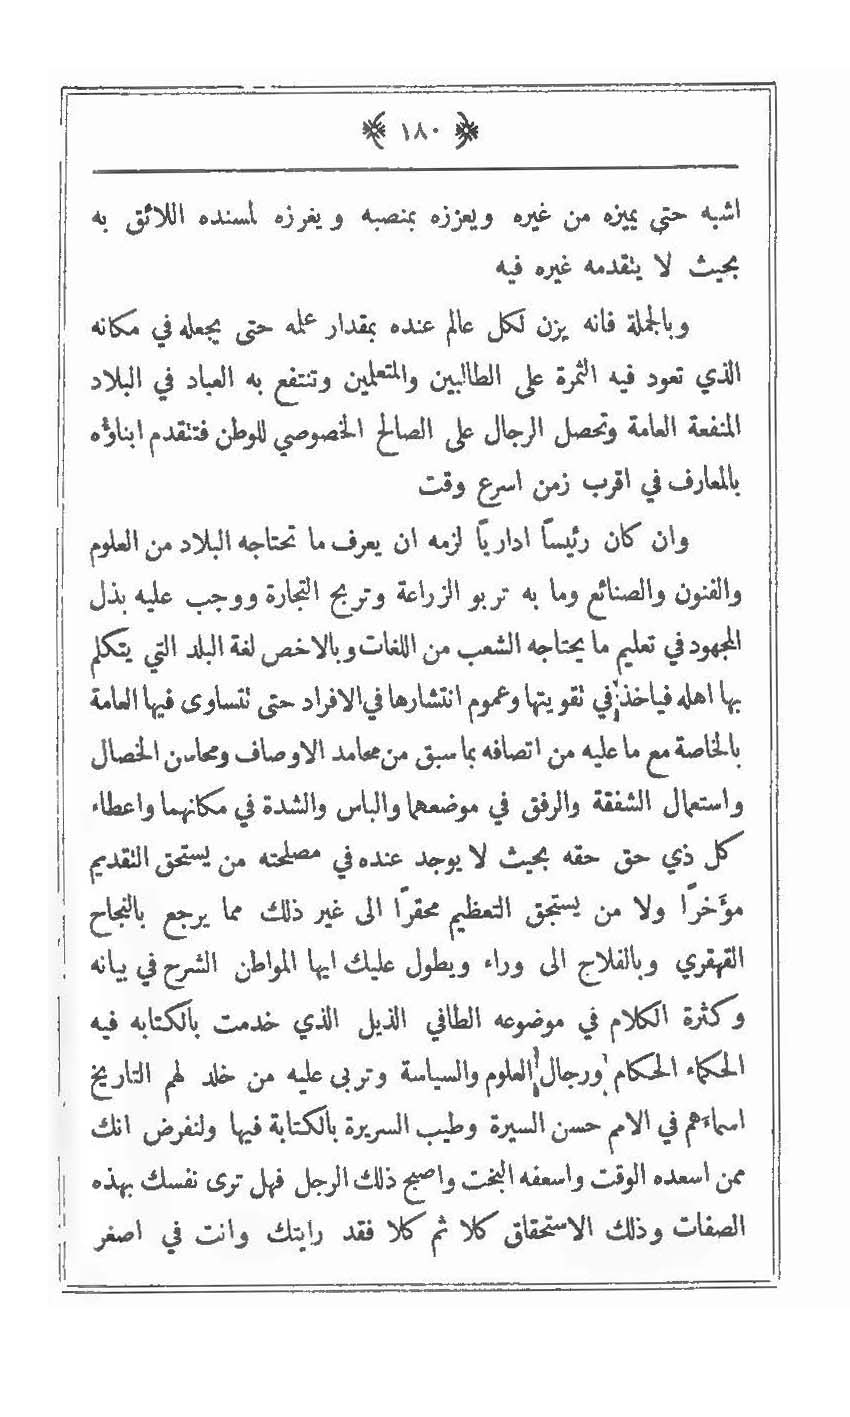 ١٨٠
اشبه حتى يميزه من غيره ويعززه بمنصبه ويغرزه لمسنده اللائق به
بحيث لا يتقدمه غيره فيه
وبالجملة فانه يزن لكل عالم عنده بمقدار علمه حتى يجعله في مكانه
الذي تعود فيه الثمرة على الطالبين والمتعلمين وتنتفع به العباد في البلاد
المنفعة العامة وتحصل الرجال على الصالح الخصوصي للوطن فتتقدم ابناؤه
بالمعارف في اقرب زمن اسرع وقت
وان كان رئيساً ادارياً لزمه ان يعرف ما تحتاجه البلاد من العلوم
والفنون والصنائع وما به تربو الزراعة وتربح التجارة ووجب عليه بذل
المجهود في تعليم ما يحتاجه الشعب من اللغات وبالاخص لغة البلد التي يتكلم
بها اهله فياخذ في تقويتها وعموم انتشارها في الافراد حتى تتساوى فيها العامة
بالخاصة مع ما عليه من اتصافه بما سبق من محامد الاوصاف ومحاسن الخصال
واستعمال الشفقة والرفق في موضعهما والباس والشدة في مكانهما واعطاء
كل ذي حق حقه بحيث لا يوجد عنده في مصلحته من يستحق التقديم
مؤَخراً ولا من يستحق التعظيم محقراً الى غير ذلك مما يرجع بالنجاح
القهقري وبالفلاح الى وراء ويطول عليك ايها المواطن الشرح في بيانه
وكثرة الكلام في موضوعه الطافي الذيل الذي خدمت بالكتابه فيه
الحكماء الحكام ورجال العلوم والسياسة وتربى عليه من خلد لهم التاريخ
اسماءَهم في الامم حسن السيرة وطيب السريرة بالكتابة فيها ولنفرض انك
ممن اسعده الوقت واسعفه البخت واصبح ذلك الرجل فهل ترى نفسك بهذه
الصفات وذلك الاستحقاق كلا ثم كلا فقد رايتك وانت في اصغر